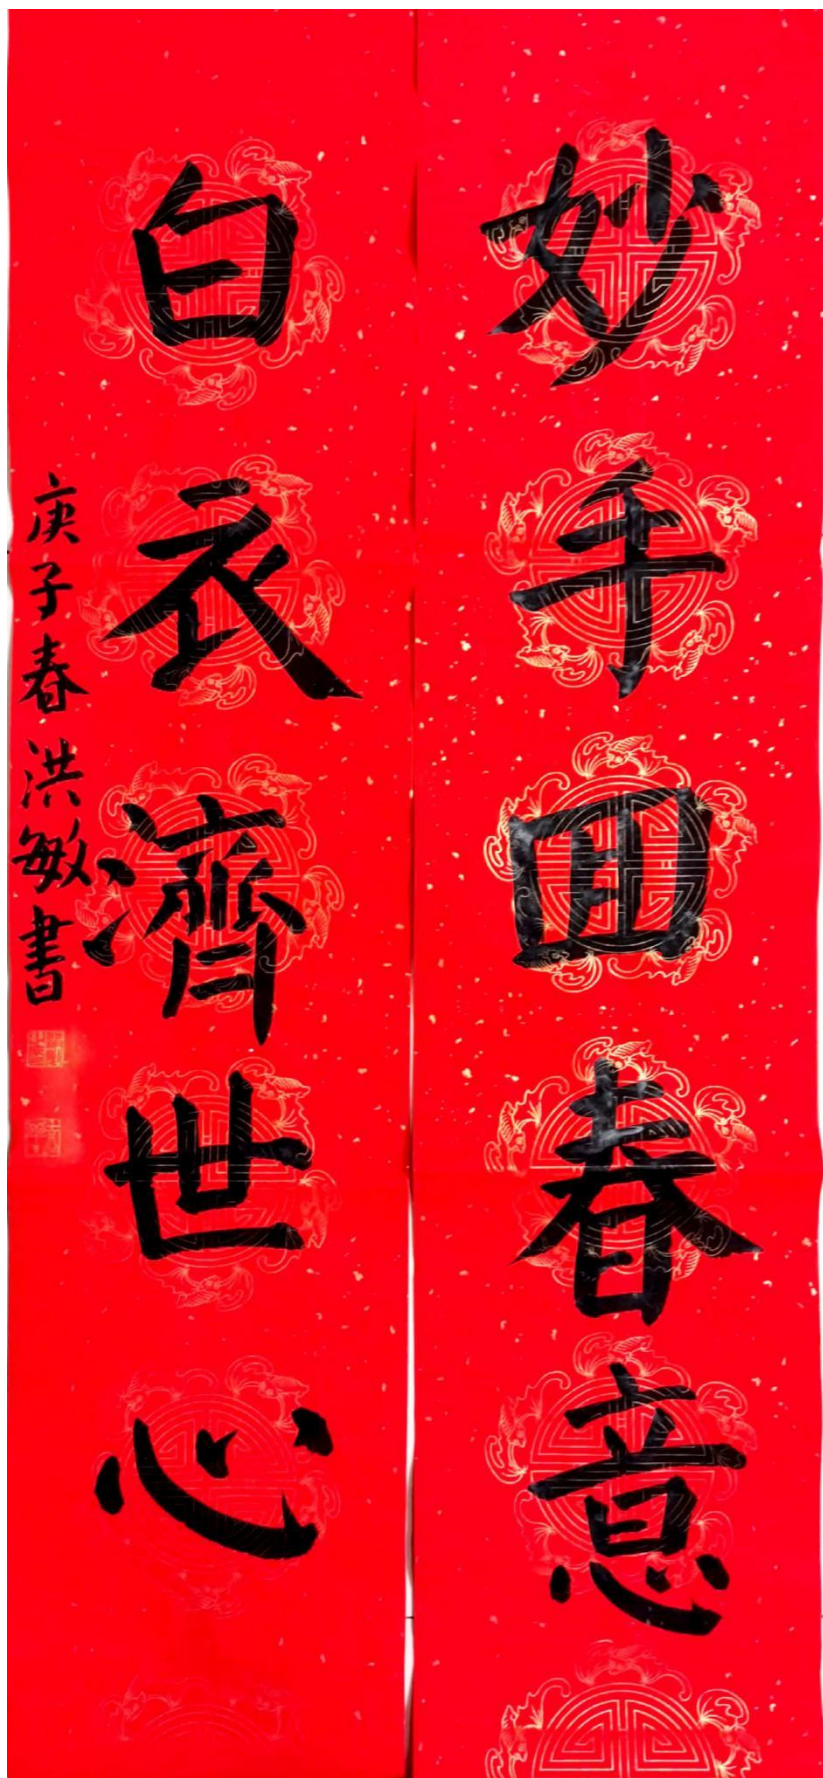 妙手囬春意
白衣濟世心
庚子春洪敏書